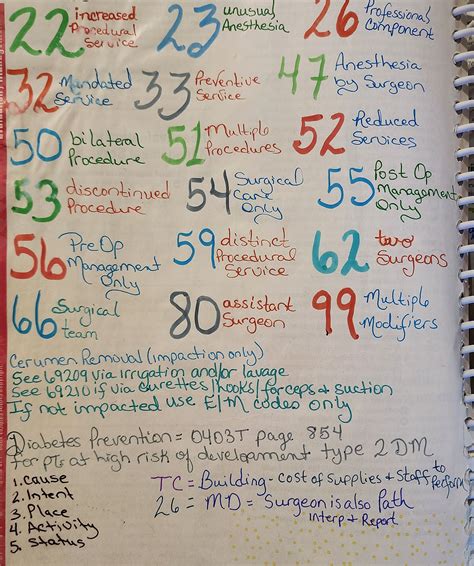 22 increased Procedural Service
23 unusual Anesthesia
26 Professional Component
32 Mandated Service
33 Preventive Service
47 Anesthesia by Surgeon
50 bilateral Procedure
51 Multiple Procedures
52 Reduced Services
53 discontinued Procedure
54 Surgical Care Only
55 Post Op Management Only
56 Pre Op Management Only
59 distinct Procedural Service
62 two Surgeons
66 Surgical team
80 assistant Surgeon
99 Multiple Modifiers
Cerumen Removal (impaction only)
See 69209 via irrigation and/or lavage
See 69210 if via curettes/hooks/forceps & suction
If not impacted use E/M codes only
Diabetes Prevention = 0403T page 854
for pts at high risk of development type 2 DM
1. cause
2. Intent
3. Place
4. Activity
5. Status
TC = Building - cost of supplies & Staff to perform
26 = MD = Surgeon is also Path
Interp & Report